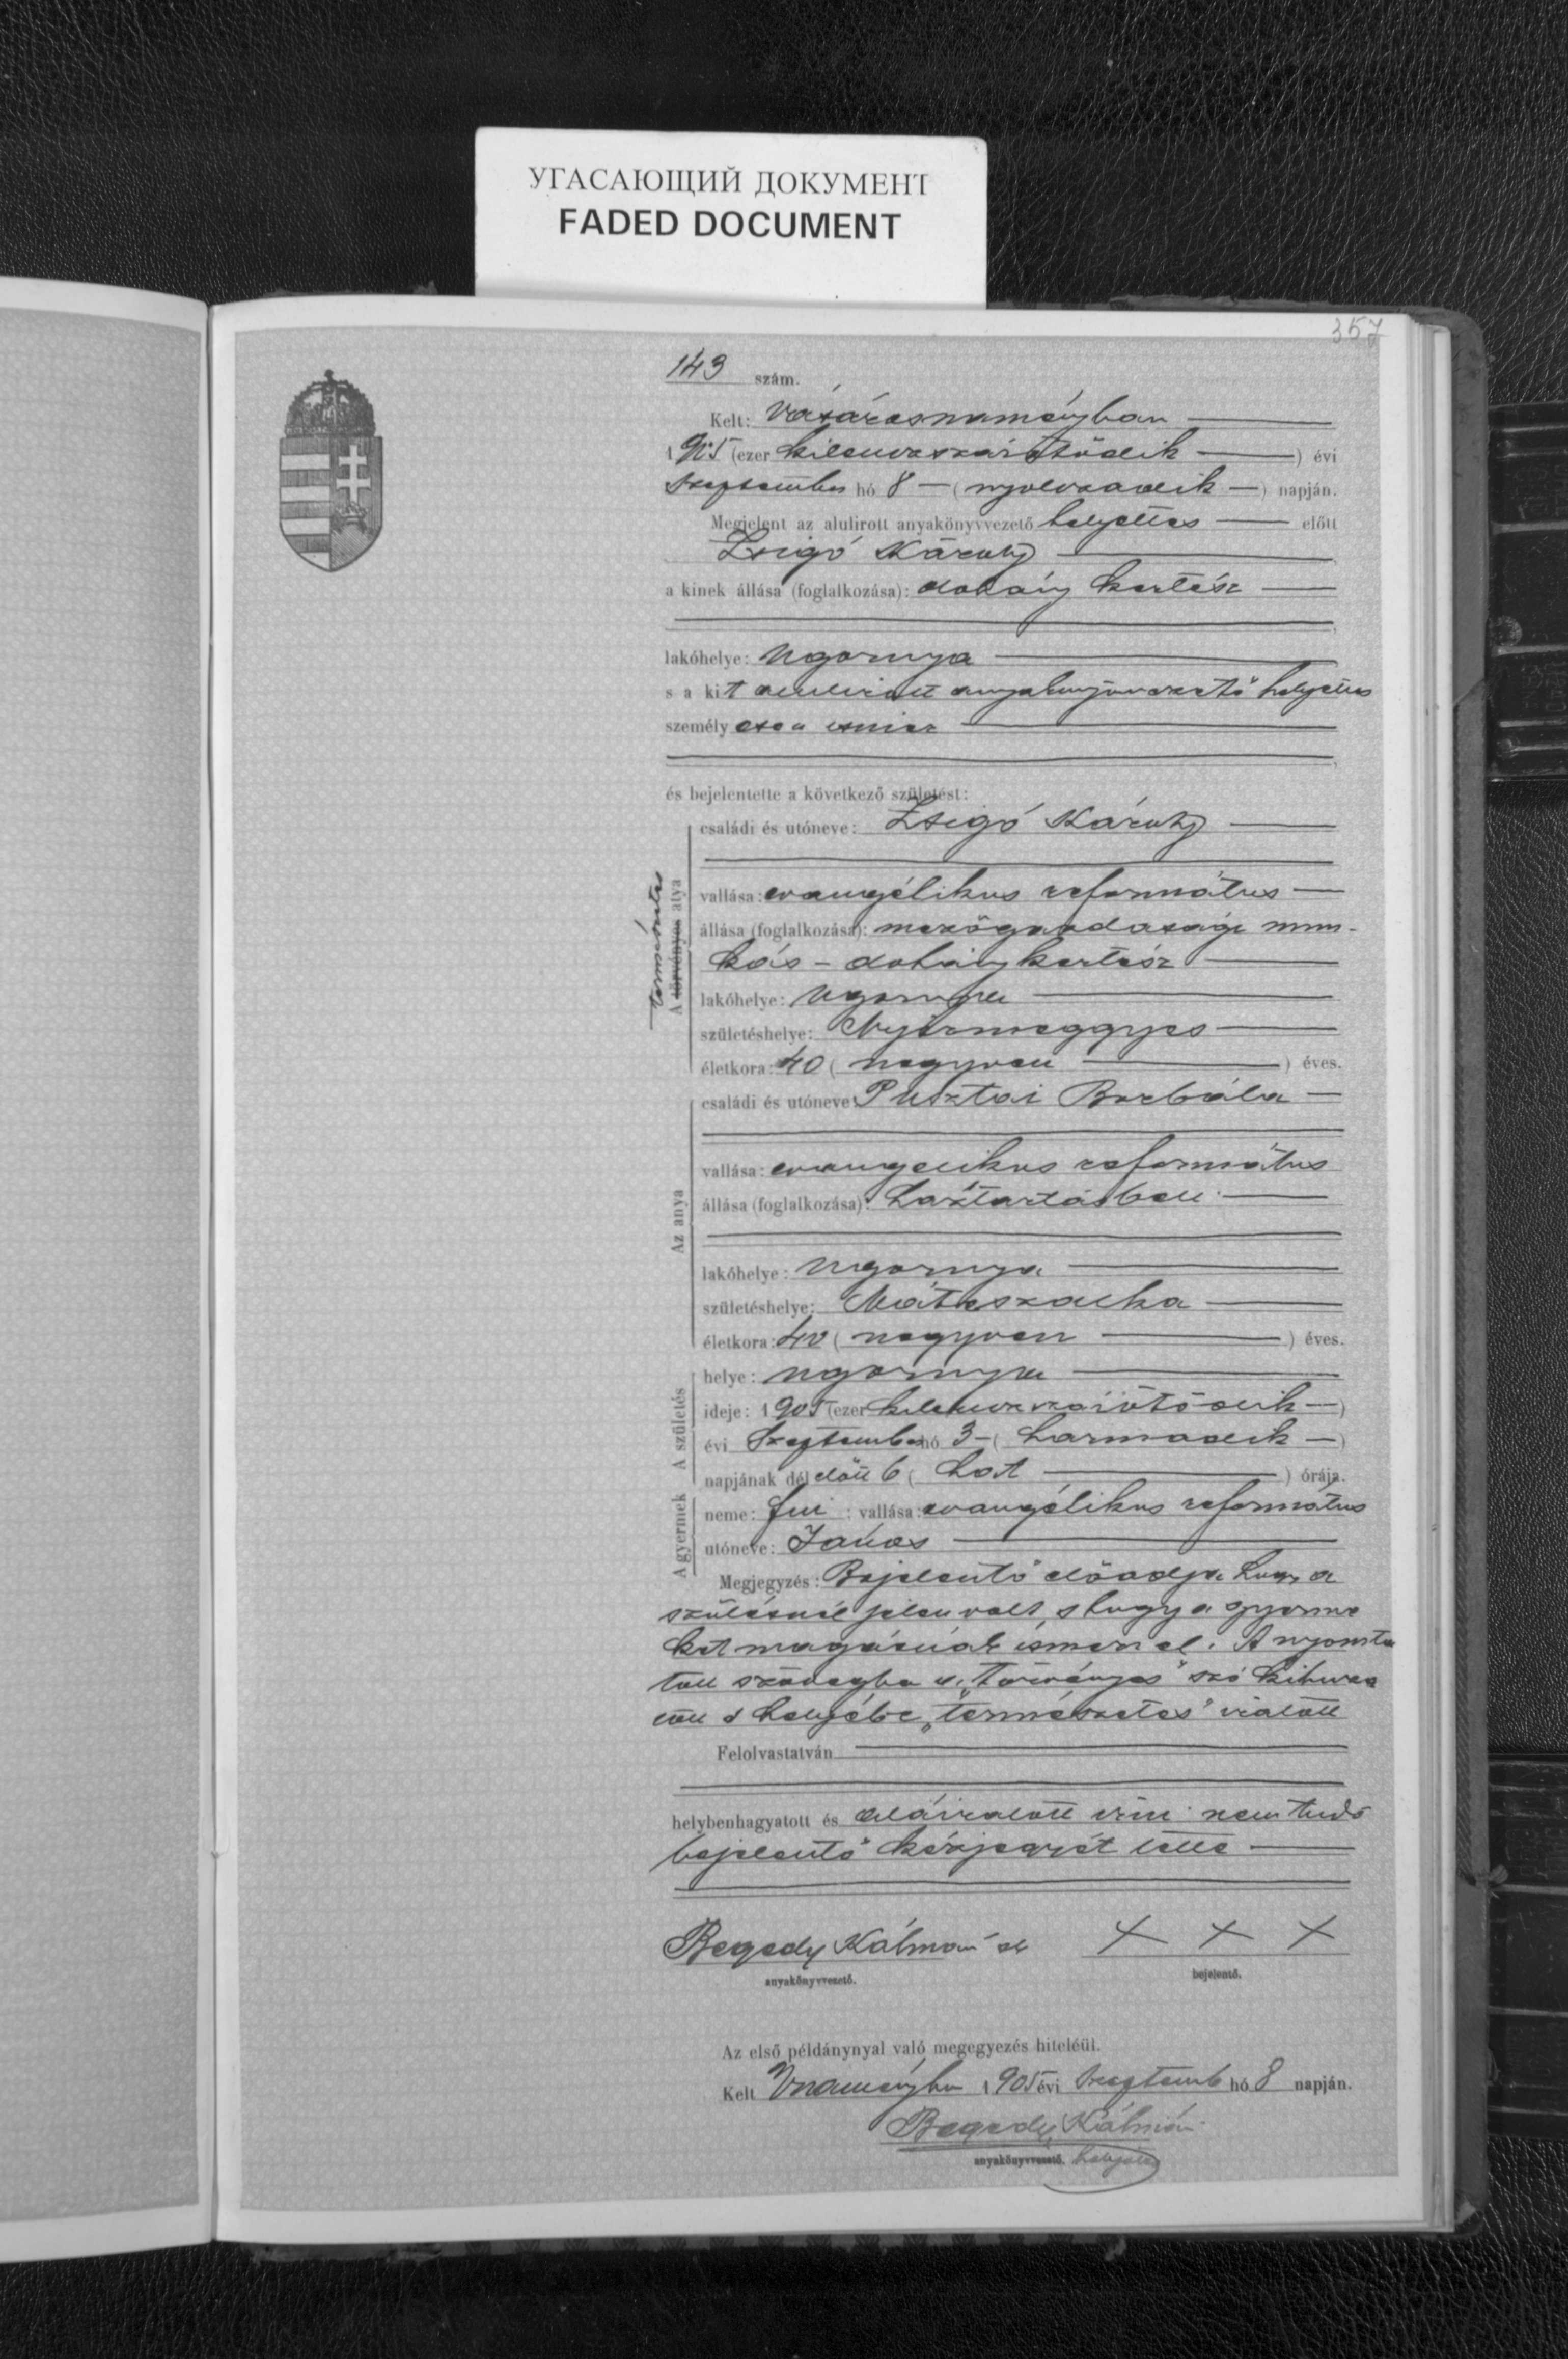 УГАСАЮЩИЙ ДОКУМЕНТ
FADED DOCUMENT
357
143 szám.
Kelt: Vásárosnaményban
1905 (ezer kilenczszázötödik) évi
Szeptember hó 8 (nyolczadik) napján.
Megjelent az alulirott anyakönyvvezető helyettes előtt
Zsigó Károly
a kinek állása (foglalkozása): dohány kertész
lakóhelye: Ugornya
s a kit alulirott anyakönyvvezető helyettes
személyesen ismer
és bejelentette a következő születést:
természetes
A törvényes atya
családi és utóneve: Zsigó Károly
vallása: evangélikus református
állása (foglalkozása): mezőgazdasági mun-
kás - dohánykertész
lakóhelye: Ugornya
születéshelye: Nyírmeggyes
életkora: 40 (negyven) éves.
Az anya
családi és utóneve: Pusztai Borbála
vallása: evangelikus református
állása (foglalkozása): háztartásbeli
lakóhelye: Ugornya
születéshelye: Mátészalka
életkora: 40 (negyven) éves.
A születés
helye: Ugornya
ideje: 1905 (ezer kilenczszázötödik)
évi Szeptember hó 3 (harmadik)
napjának dél előtt 6 (hat) órája.
A gyermek
neme: fiu; vallása: evangélikus református
utóneve: János
Megjegyzés: Bejelentő előadja hogy a
szülésnél jelen volt, s hogy a gyerme
ket magáénak ismeri el. A nyomta
tott szövegbe a "törvényes" szó
s helyébe "természetes" iratott
Felolvastatván
helybenhagyatott és aláiratott irni nem tudó
bejelentő kézjegyét tette
Begedy Kálmán
anyakönyvvezető.
X X X
bejelentő.
Az első példánynyal való megegyezés hiteléül.
Kelt Vnaményba 1905 évi Szeptemb hó 8 napján.
Begedy Kálmán
anyakönyvvezető. helyettes